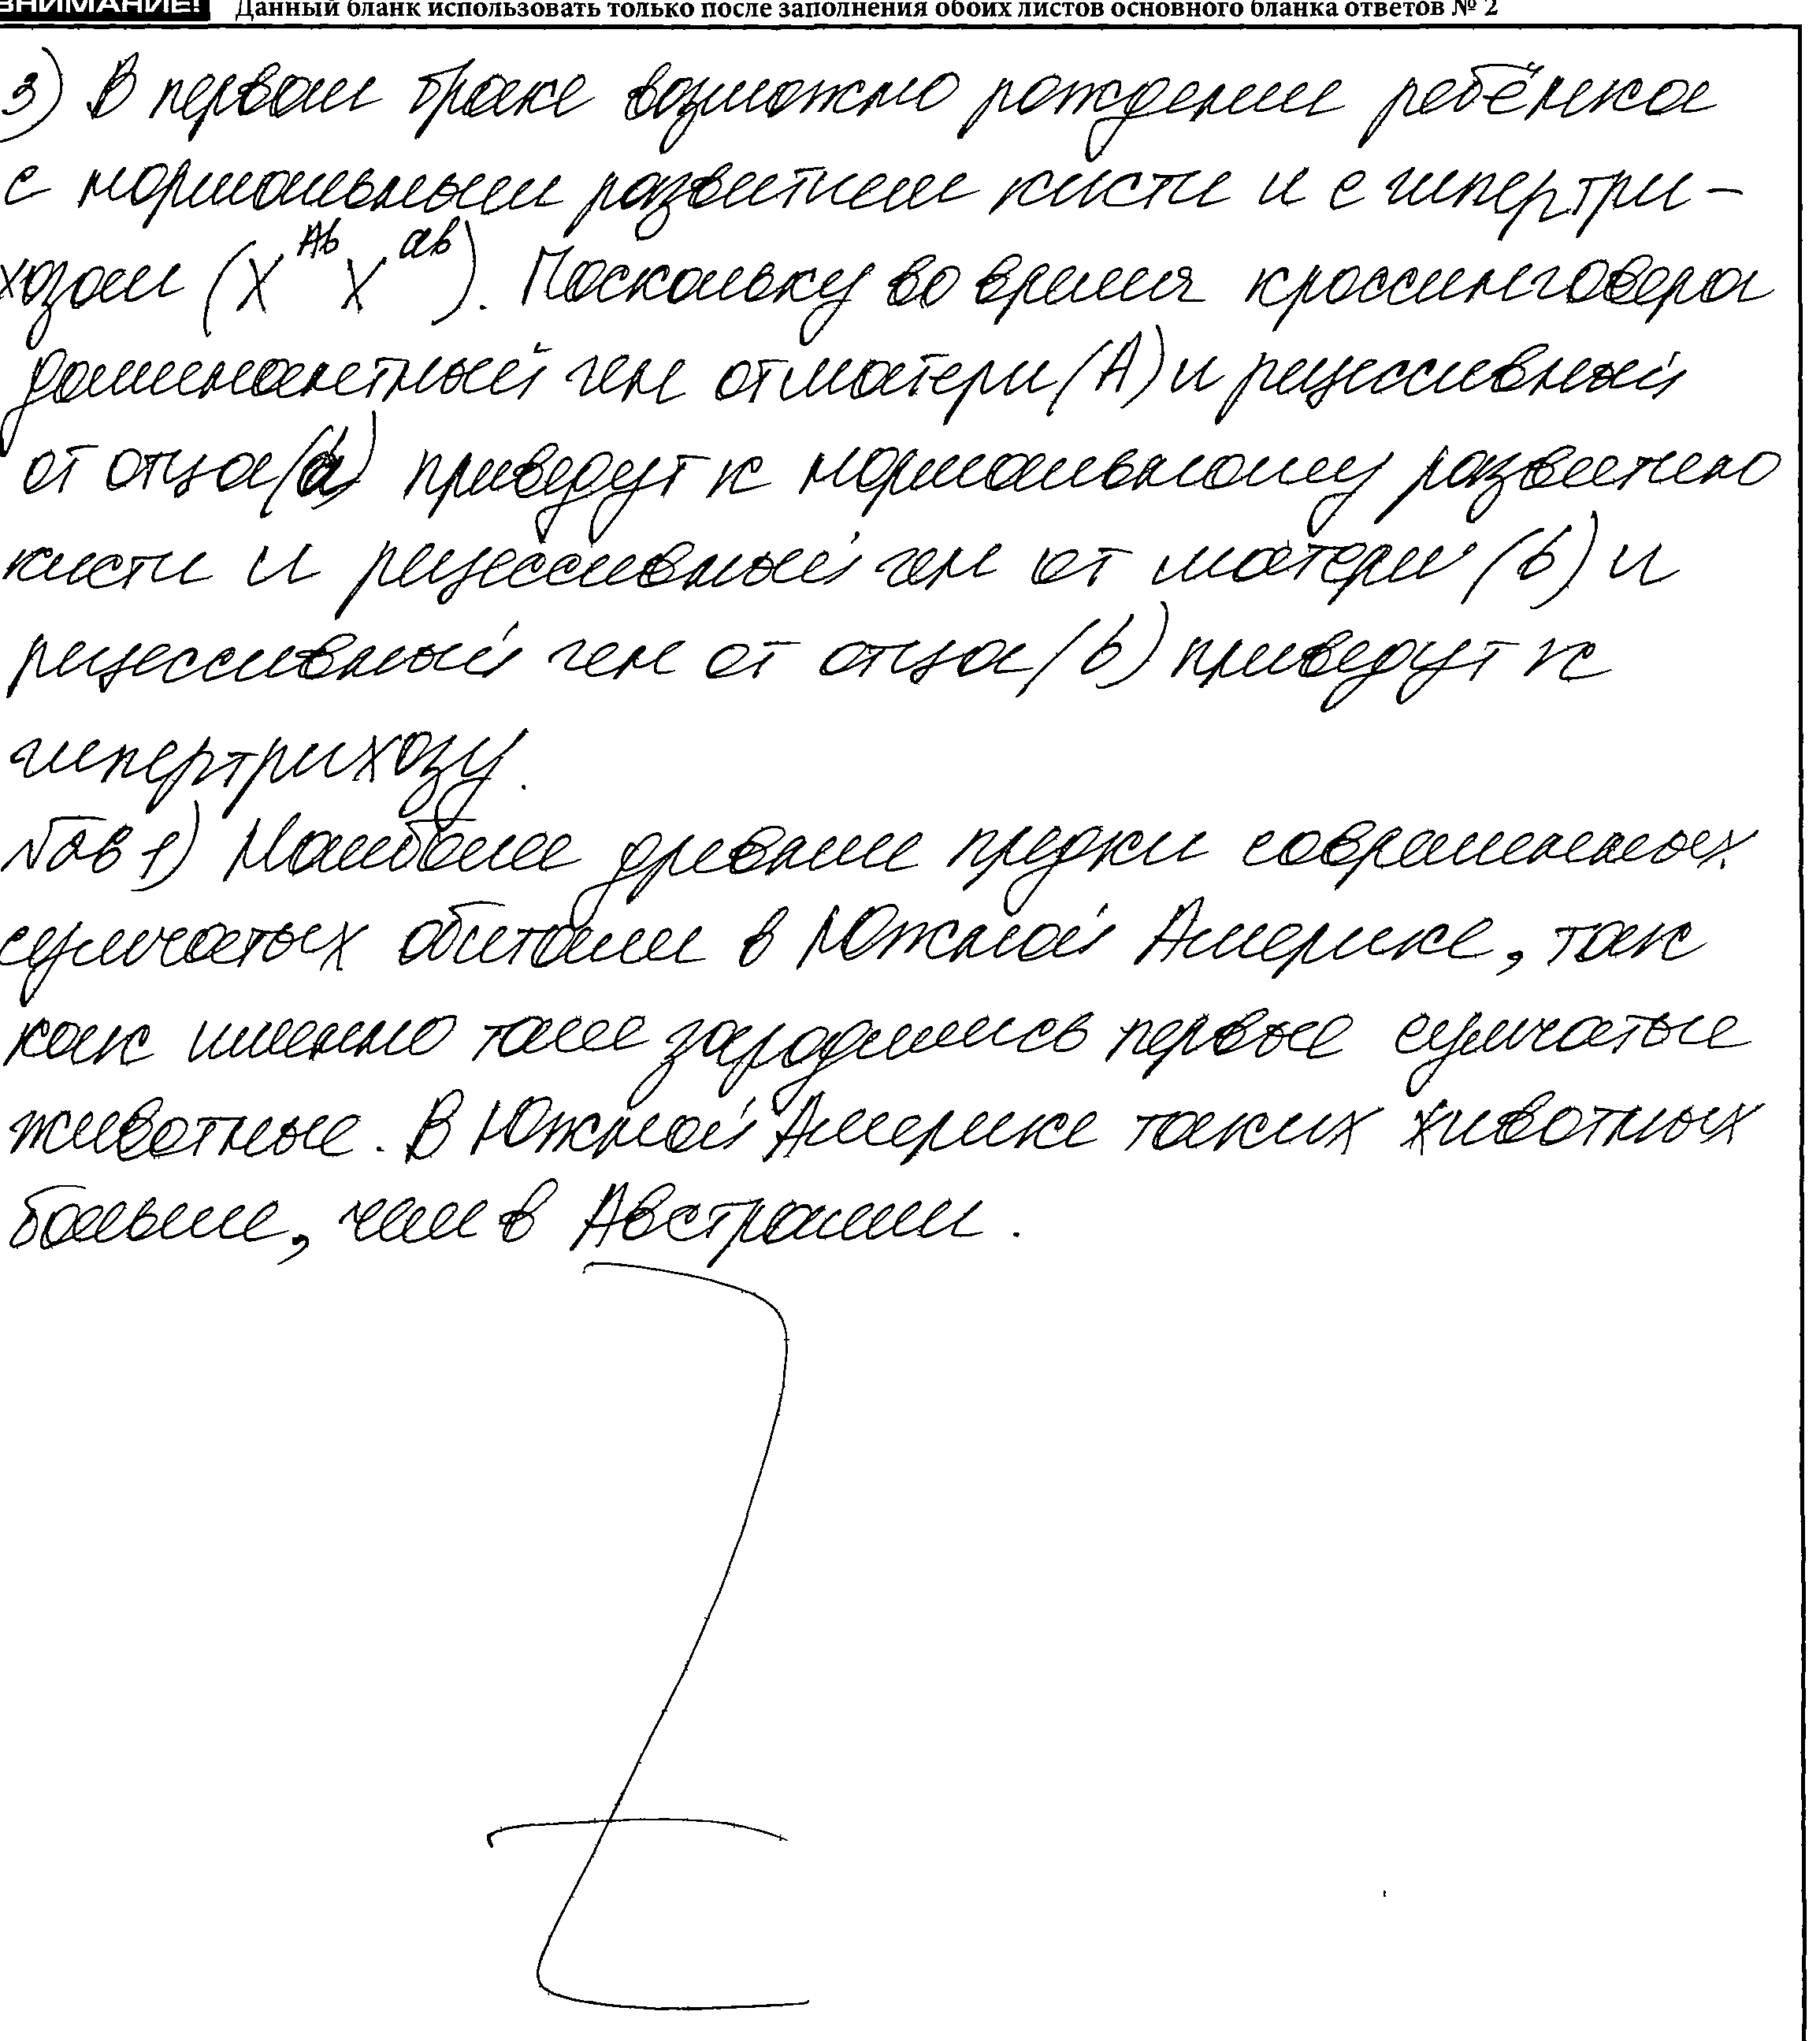 ВНИМАНИЕ! Данный бланк использовать только после заполнения обоих листов основного бланка ответов № 2
3) В первом браке возможно рождение ребёнка
с нормальным развитием кисти и с гипертри-
хозом (X^Ab X^ab). Поскольку во время кроссинговера
доминантный ген от матери (А) и рецессивный
от отца (а) приведут к нормальному развитию
кисти и рецессивный ген от матери (b) и
рецессивный ген от отца (b) приведут к
гипертрихозу.
1) Наиболее древние предки современных
сумчатых обитали в Южной Америке, так
как именно там зародились первые сумчатые
животные. В Южной Америке таких животных
больше, чем в Австралии.